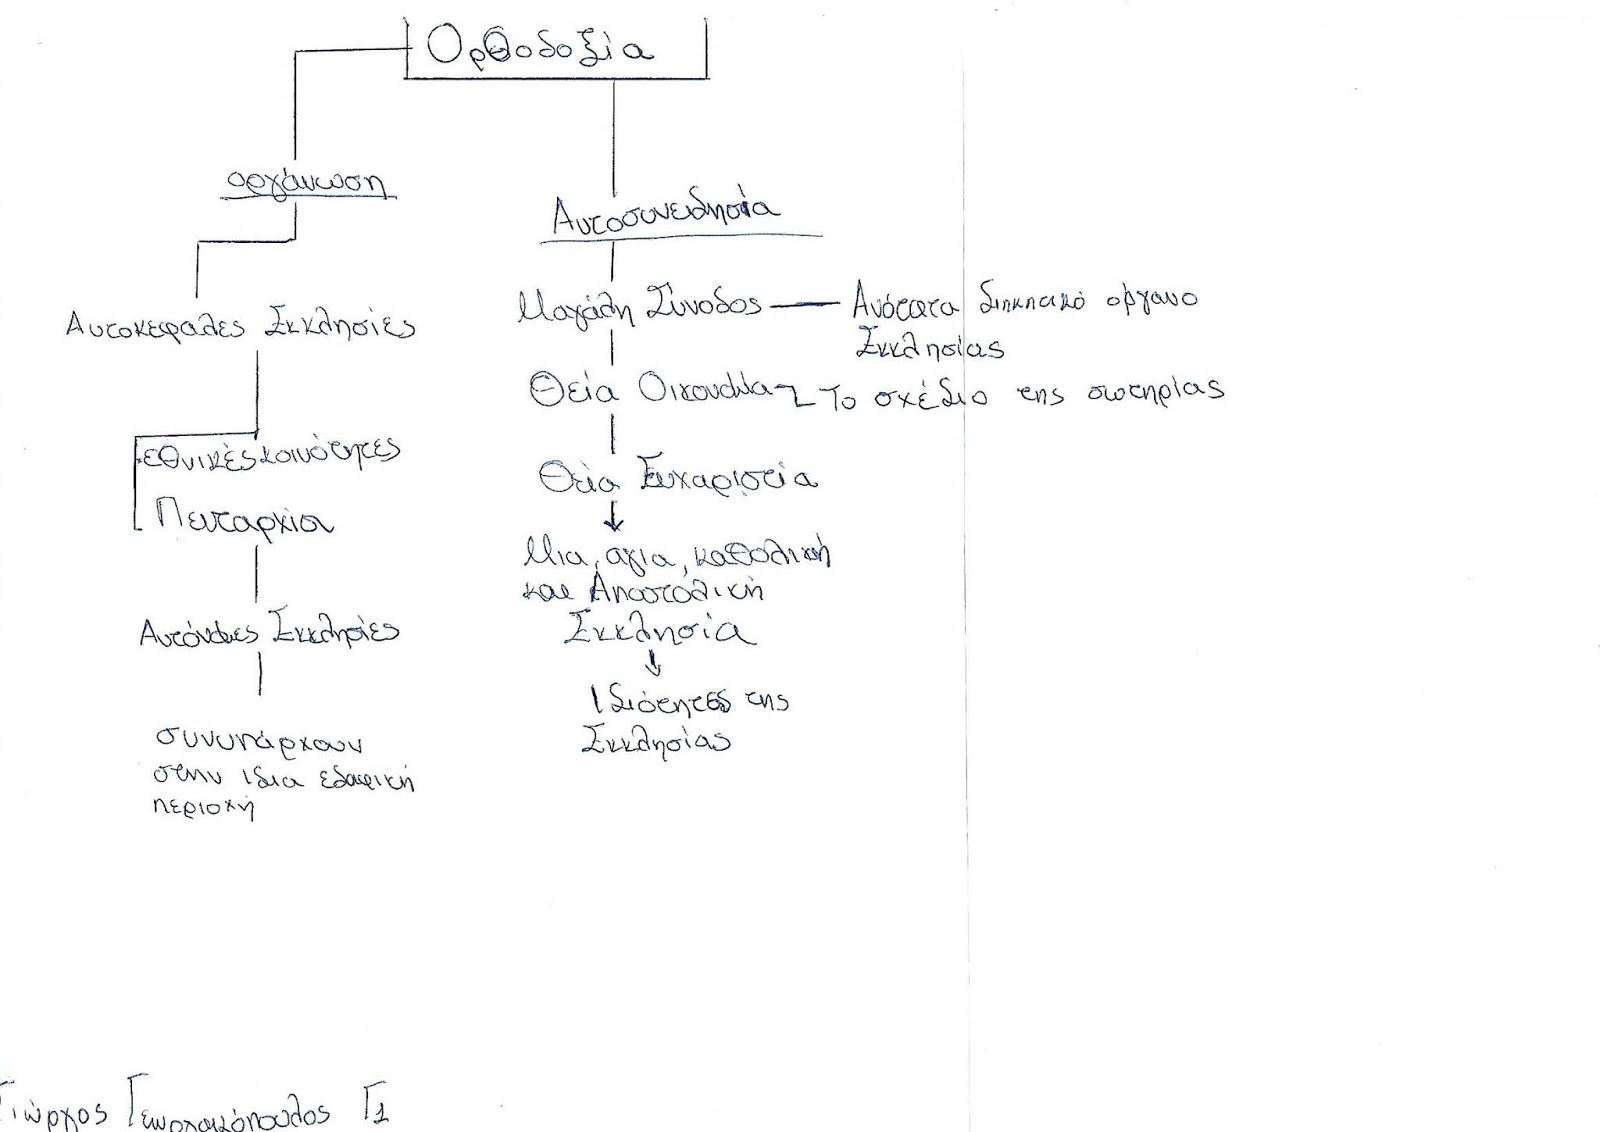 Ορθοδοξία
οργάνωση
Αυτοσυνειδησία
Αυτοκεφαλες Εκκλησίες
Μαγάλη Σύνοδος — Ανότατα διηκητικό όργανο
Εκκλησίας
Θεία Οικονομία Το σχέδιο της σωτηρίας
εθνικές κοινότητες
Πενταρχία
Θεία Ευχαριστία
Μια, αγια, καθολική
και Αποστολική
Εκκλησία
Αυτόνομες Εκκλησίες
Ιδιότητες της
Εκκλησίας
συνυπάρχουν
στην ιδια εδαφική
περιοχή
Γιώργος Γεωργακόπουλος Γ1